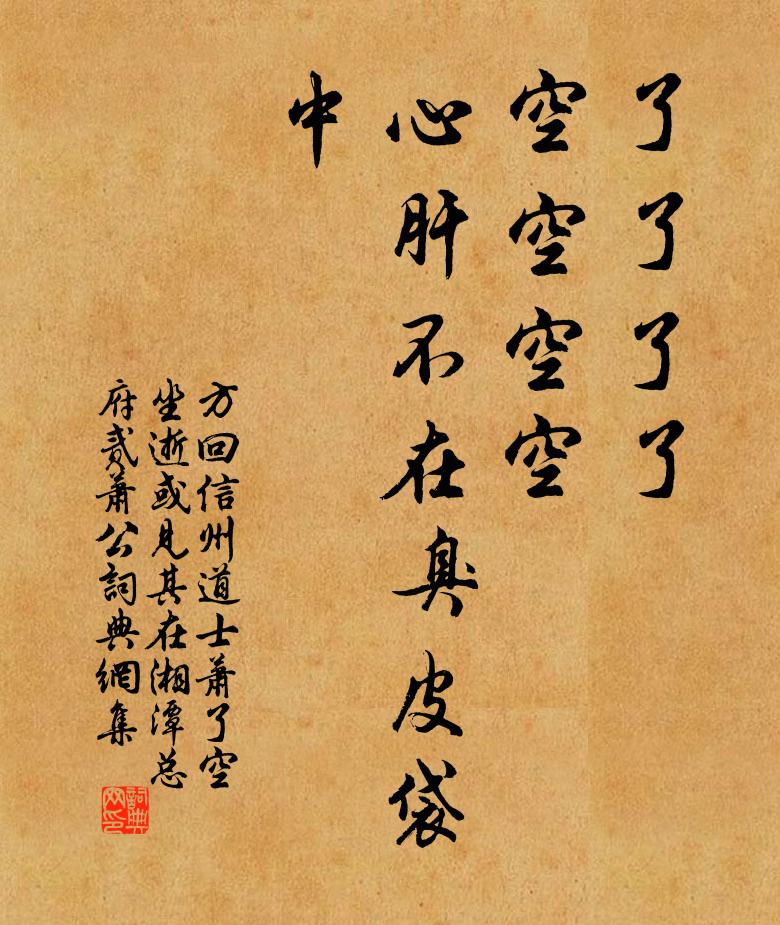 了了了了
空空空空
心肝不在臭皮袋
中
方回信州道士萧了空
坐逝或见其在湘潭总
府贰萧公詞典網集
詞典網印